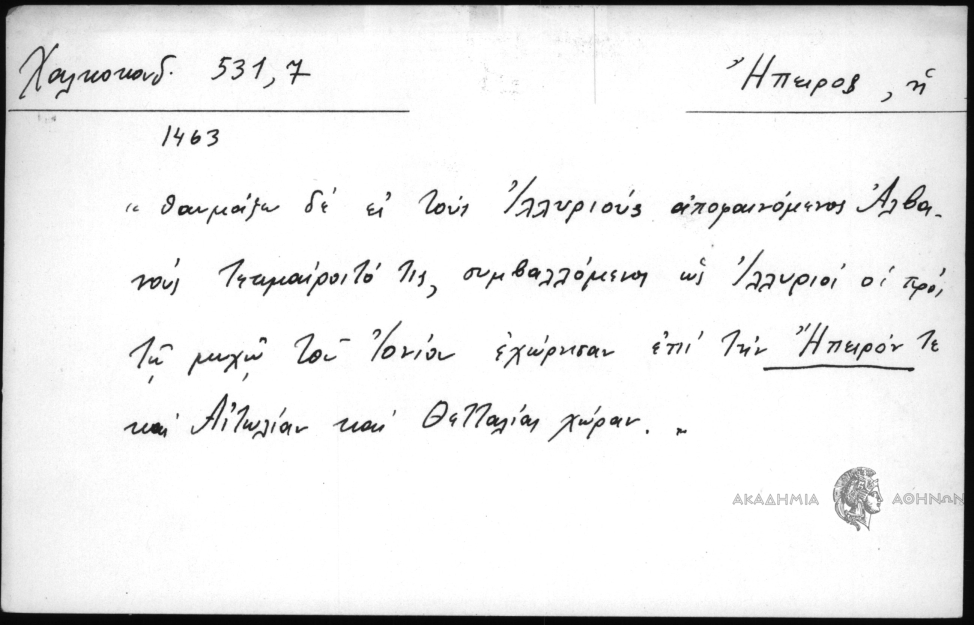 Χαλκοκονδ. 531,7
Ἤπειρος, ἡ
1463
“ θαυμάζω δέ εἰ τούς Ἰλλυριούς ἀποφαινόμενος Ἀλβα-
νούς τεκμαίροιτό τις, συμβαλλόμενος ὡς Ἰλλυριοί οἱ πρός
τῷ μυχῷ τοῦ Ἰονίου ἐχώρησαν ἐπί τήν Ἤπειρόν τε
καί Αἰτωλίαν καί Θετταλίας χώραν. „
ΑΚΑΔΗΜΙΑ ΑΘΗΝΩΝ